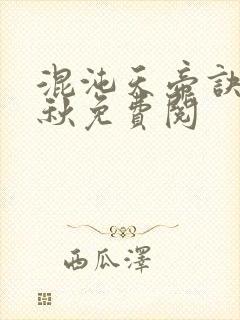 混沌天帝訣
秋免費閱
西瓜澤